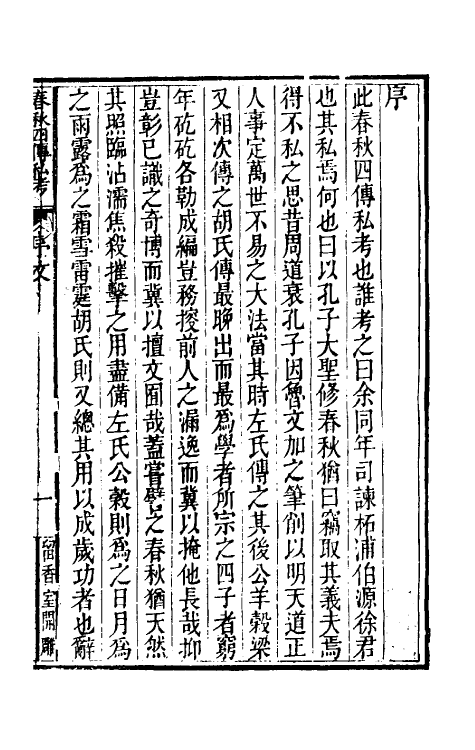 序
此春秋四傳私考也誰考之曰余同年司諫柘浦伯源徐君
也其私焉何也曰以孔子大聖修春秋猶曰竊取其義夫焉
得不私之思昔周道衰孔子因魯文加之筆削以明天道正
人事定萬世不易之大法當其時左氏傳之其後公羊穀梁
又相次傳之胡氏傳最晚出而最爲學者所宗之四子者窮
年矻矻各勒成編豈務搜前人之漏逸而冀以掩他長哉抑
豈彰已識之奇博而冀以擅文囿哉蓋嘗譬之春秋猶天然
其照臨沾濡焦殺摧擊之用盡備左氏公穀則爲之日月爲
之雨露爲之霜雪雷霆胡氏則又總其用以成歲功者也辭
春秋四傳私考 序文 一 留香室開雕